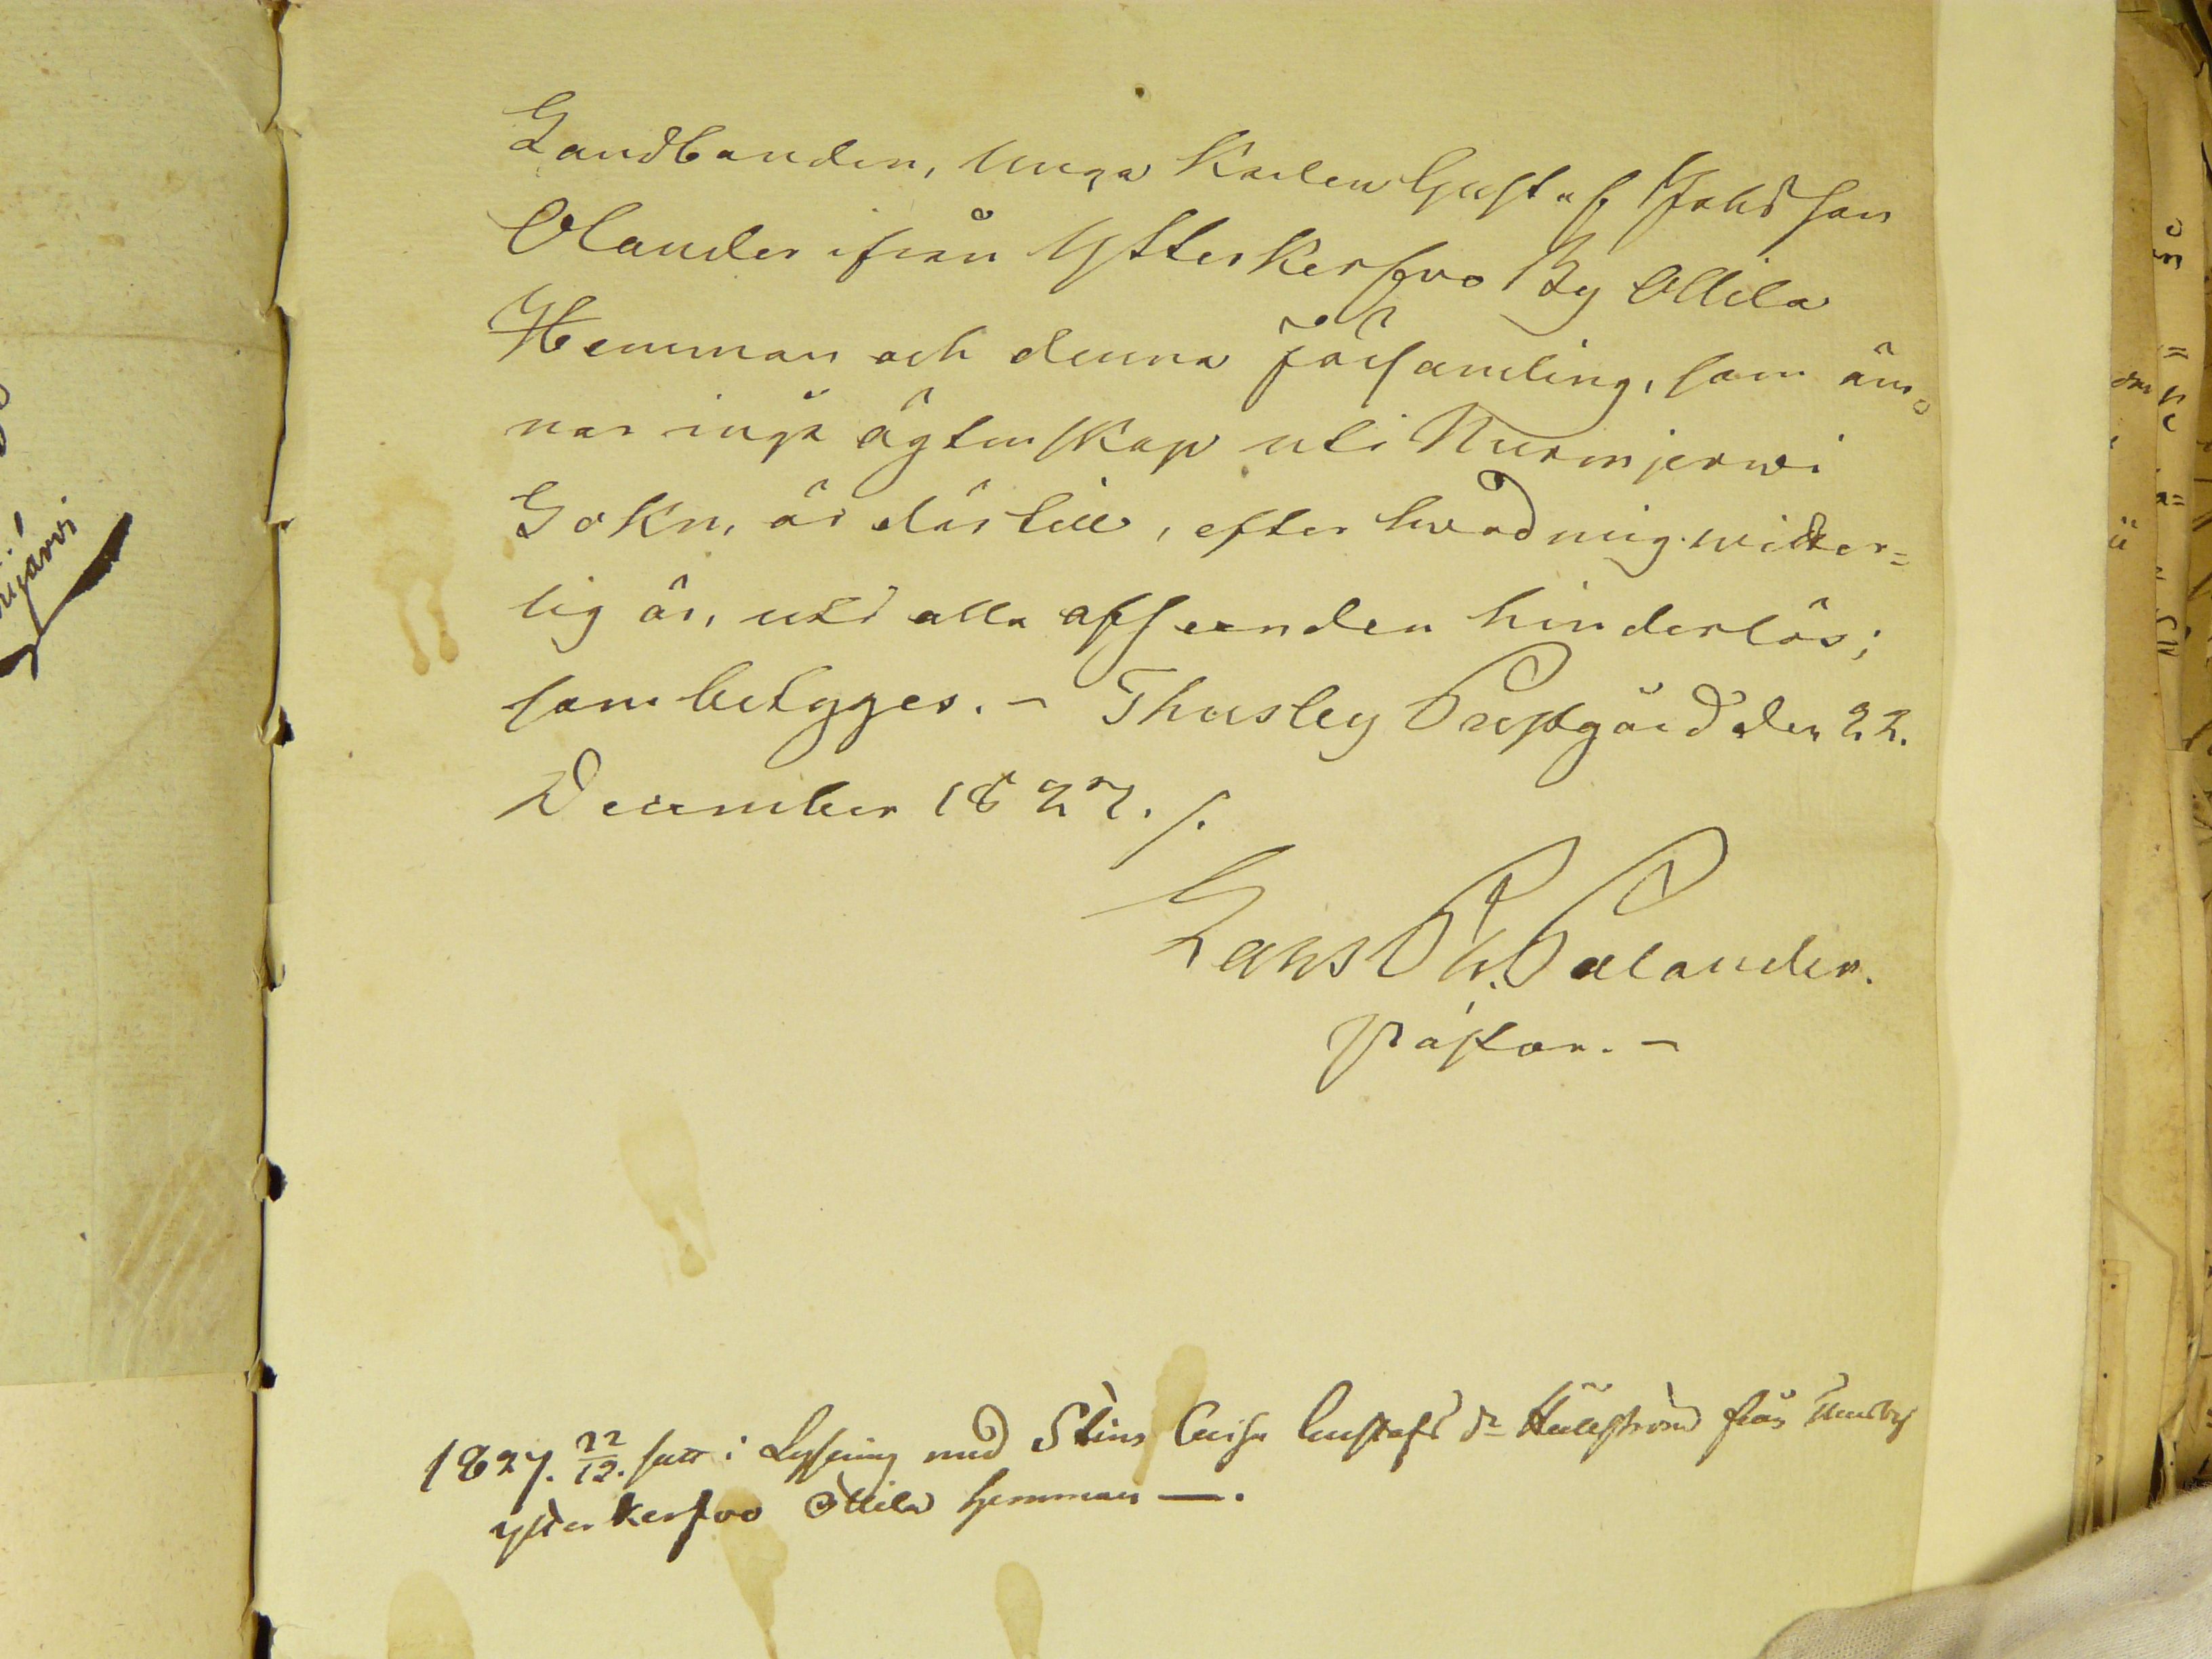 Landbonden, Unga Karlen Gustaf Jahsson
Olander ifrån Ytterkerfvo By Ollila
Hemman och denna församling, som äm-
nar ingå ägtenskap uti Nurmjerwi
Sokn, är därtill, efter hvad mig witter=
lig är, uti alla afseenden hinderlös;
som betyges. - Thusby Prestgård den 22.
December 1827./.
Lars Ph. Palander.
Pastor. -
1827. 22/12. satt i Lysning med Stina Caisa Gustafs dr Hällström från
ytterkerfvo Ollila hemman —.
järvi